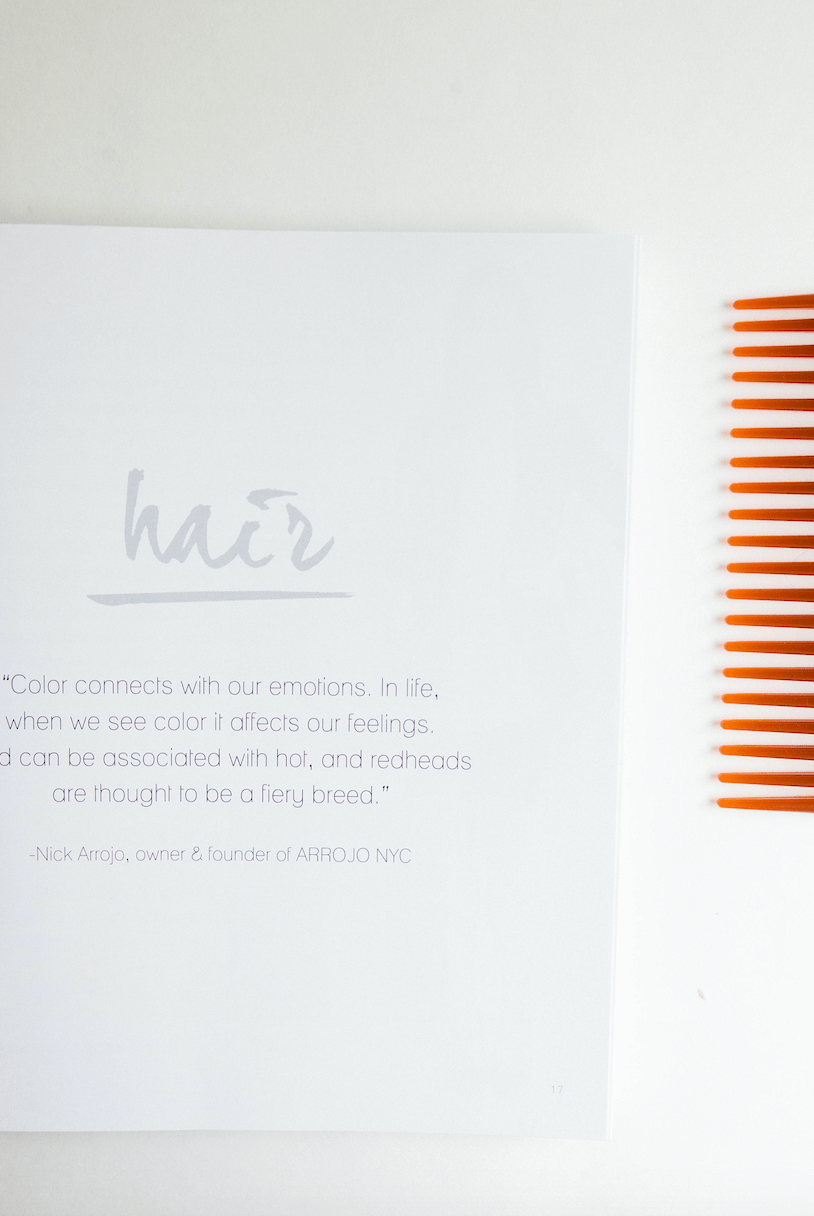 hair
“Color connects with our emotions. In life,
when we see color it affects our feelings.
d can be associated with hot, and redheads
are thought to be a fiery breed.”
-Nick Arrojo, owner & founder of ARROJO NYC
17